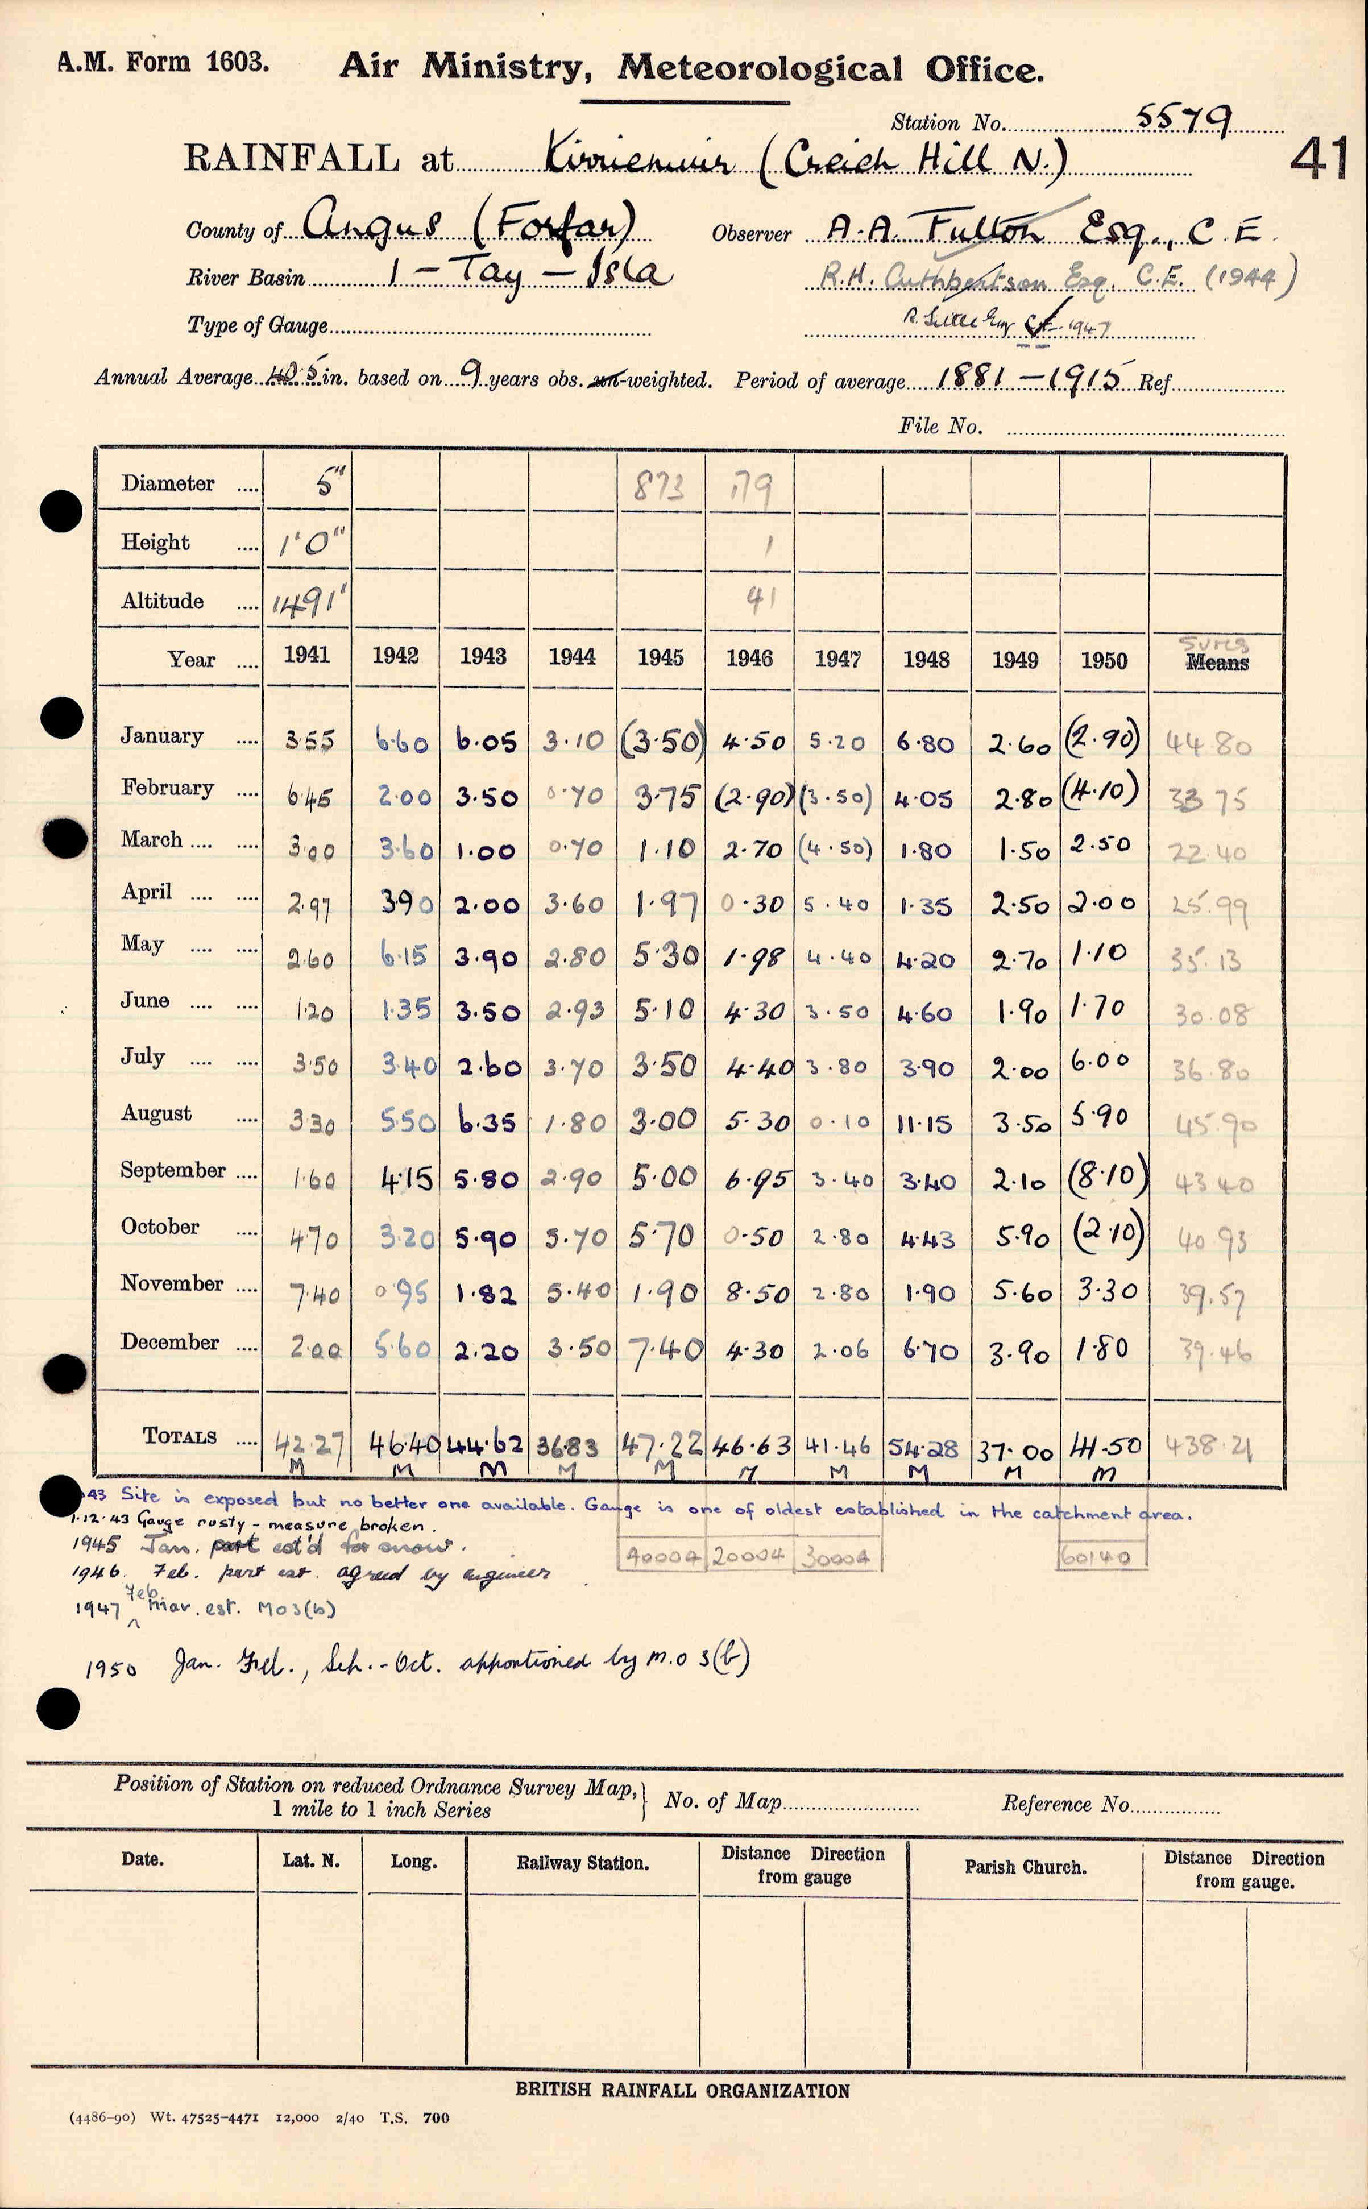 A.M. Form 1603. Air Ministry, Meteorological Office.
Station No. 5579
41
RAINFALL at Kirriemuir (Creich Hill N.)
County of Angus (Forfar) Observer A.A. Fulton Esq., C.E.
River Basin 1 - Tay - Isla R.H. Cuthbertson Esq. C.E. (1944)
Type of Gauge Esq C.E. 1947
Annual Average 40.5 in. based on 9 years obs. un-weighted. Period of average 1881-1915 Ref.
File No.
Diameter 5" 873 179
Height 1'0" 1
Altitude 1491' 41
Year 1941 1942 1943 1944 1945 1946 1947 1948 1949 1950 Sums Means
January 3.55 6.60 6.05 3.10 (3.50) 4.50 5.20 6.80 2.60 (2.90) 44.80
February 6.45 2.00 3.50 0.70 3.75 (2.90) (3.50) 4.05 2.80 (4.10) 33 75
March 3.00 3.60 1.00 0.70 1.10 2.70 (4.50) 1.80 1.50 2.50 22.40
April 2.97 3.90 2.00 3.60 1.97 0.30 5.40 1.35 2.50 2.00 25.99
May 2.60 6.15 3.90 2.80 5.30 1.98 4.40 4.20 2.70 1.10 35.13
June 1.20 1.35 3.50 2.93 5.10 4.30 3.50 4.60 1.90 1.70 30.08
July 3.50 3.40 2.60 3.70 3.50 4.40 3.80 3.90 2.00 6.00 36.80
August 3.30 5.50 6.35 1.80 3.00 5.30 0.10 11.15 3.50 5.90 45.90
September 1.60 4.15 5.80 2.90 5.00 6.95 3.40 3.40 2.10 (8.10) 43 40
October 4.70 3.20 5.90 5.70 5.70 0.50 2.80 4.43 5.90 (2.10) 40.93
November 7.40 0.95 1.82 5.40 1.90 8.50 2.80 1.90 5.60 3.30 39.57
December 2.00 5.60 2.20 3.50 7.40 4.30 2.06 6.70 3.90 1.80 39.46
TOTALS 42.27 46.40 44.62 36.83 47.22 46.63 41.46 54.28 37.00 41.50 438.21
M M M M M M M M M M
43 Site is exposed but no better one available. Gauge is one of oldest established in the catchment area.
1.12.43 Gauge rusty - measure broken.
1945 Jan. part est'd for snow. 40004 20004 30004 60140
1946. Feb. part est. agreed by engineer
1947 Feb. Mar. est. MO3(b)
1950 Jan. Feb., Sep.-Oct. apportioned by M.O 3(b)
Position of Station on reduced Ordnance Survey Map, 1 mile to 1 inch Series No. of Map Reference No.
Date. Lat. N. Long. Railway Station. Distance Direction from gauge Parish Church. Distance Direction from gauge.
BRITISH RAINFALL ORGANIZATION
(4486-90) Wt. 47525-4471 12,000 2/40 T.S. 700